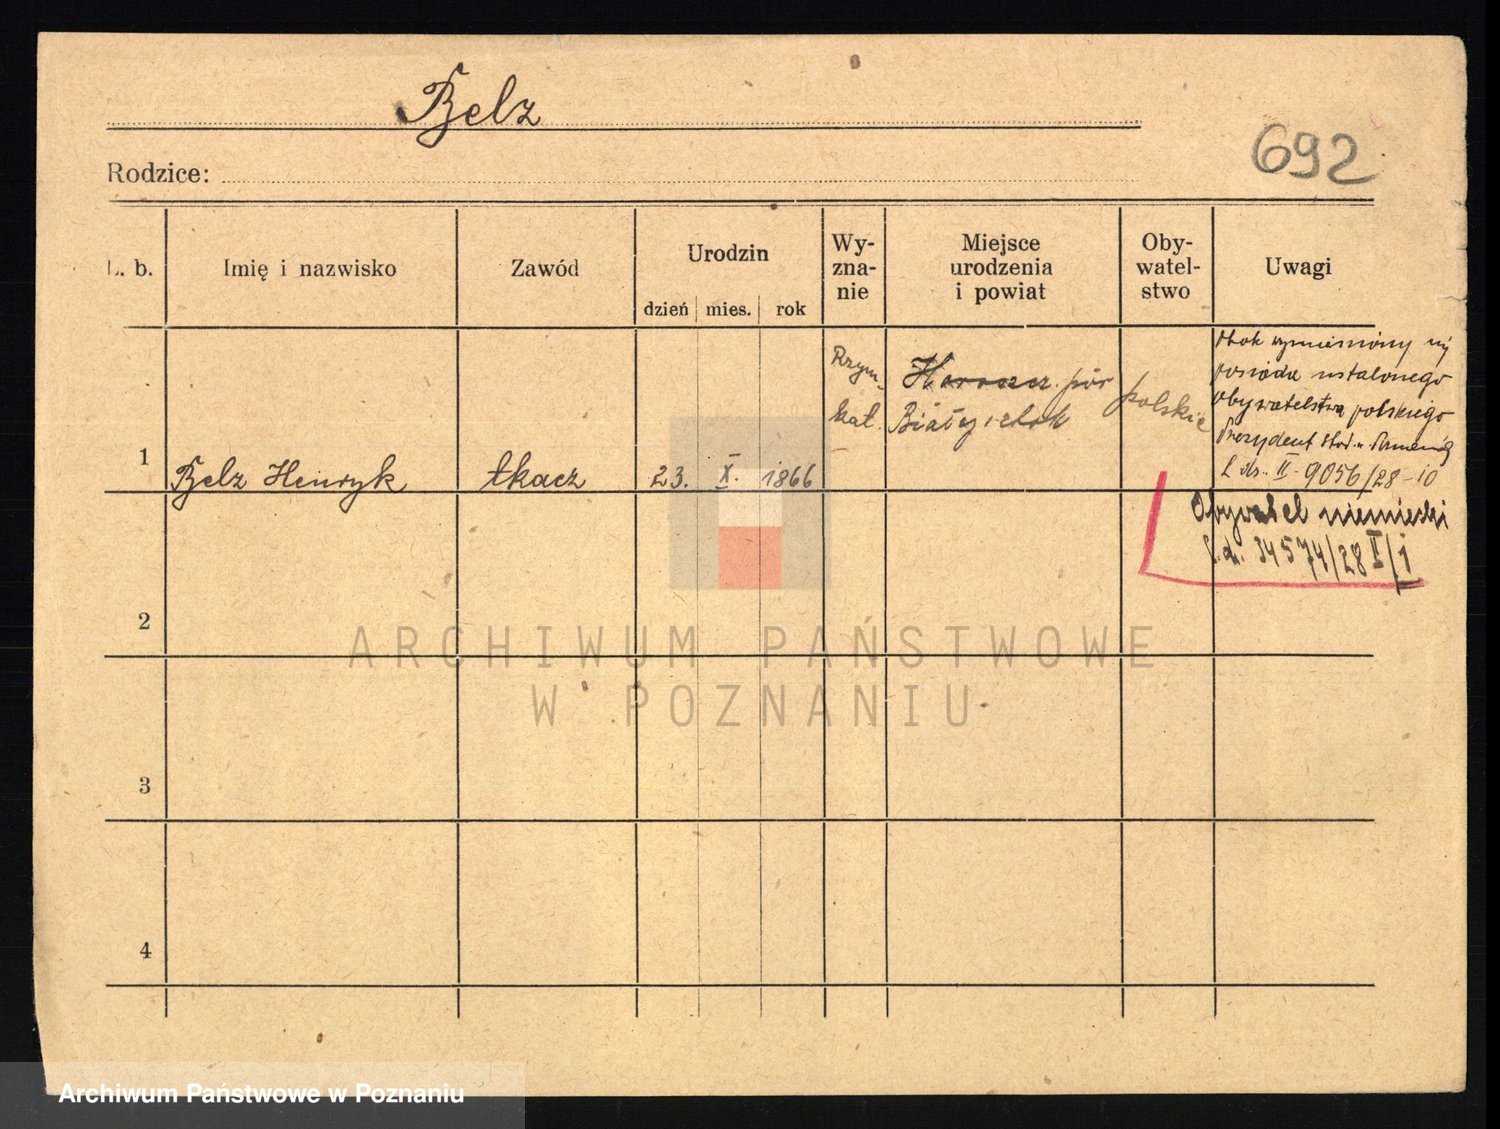 Belz
692
Rodzice:
L. b.
Imię i nazwisko
Zawód
Urodzin
dzień mies. rok
Wy-
zna-
nie
Miejsce
urodzenia
i powiat
Oby-
watel-
stwo
Uwagi
1
Belz Henryk
tkacz
23. X. 1866
Rzym.
kat.
Horoszcz. pow
Białystok
polskie
Obok wymieniony nie
posiada ustalonego
obywatelstwa polskiego
Prezydent
L. dz. II. 9056/28-10
Obywatel niemiecki
L. d. 34574/28 X/1
2
3
4
ARCHIWUM PAŃSTWOWE
W POZNANIU
Archiwum Państwowe w Poznaniu